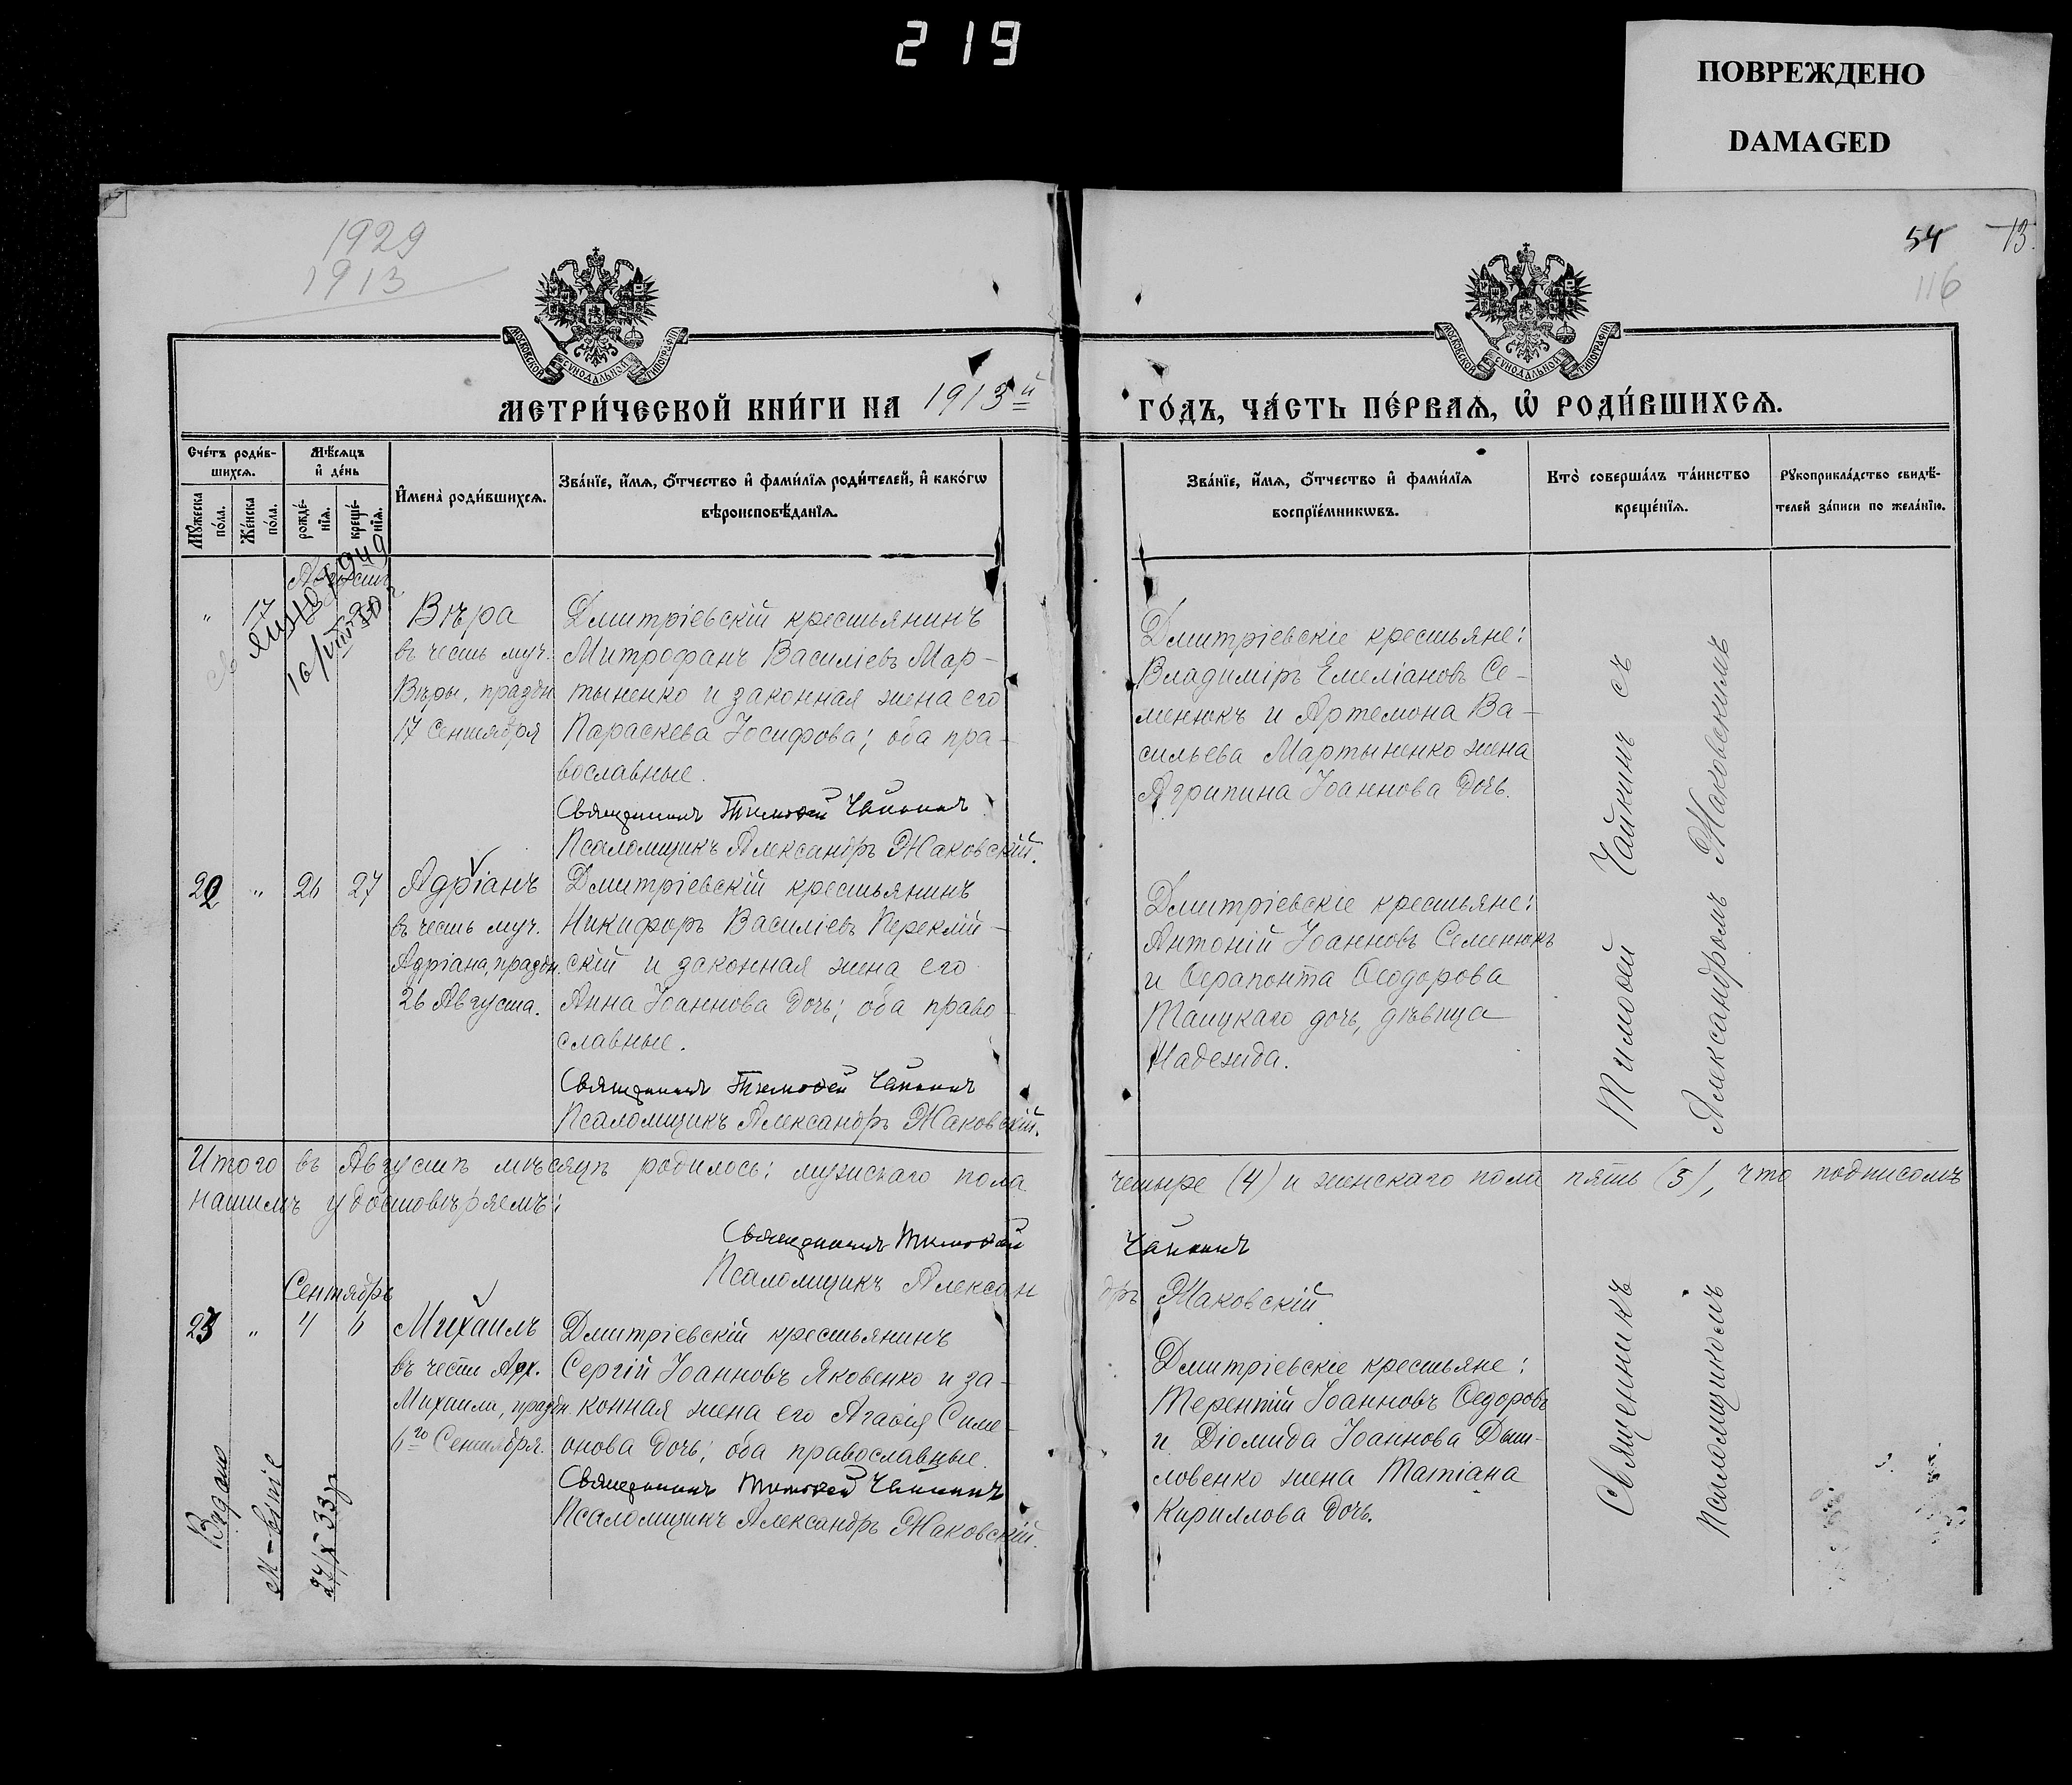 219
ПОВРЕЖДЕНО
DAMAGED
1929
1913
54 13.
116
МОСКОВСКОЙ СѴНОДАЛЬНОЙ ТИПОГРАФІИ
МОСКОВСКОЙ СѴНОДАЛЬНОЙ ТИПОГРАФІИ
МЕТРИ́ЧЕСКОЙ КНИ́ГИ НА 1913й
ГО́ДЪ, ЧА́СТЬ ПЕ́РВАѦ, Ѡ҆ РОДИ́ВШИХСѦ.
Сче́тъ роди́в-
шихсѧ.
Мꙋ́жеска по́ла.
Же́нска по́ла.
Мѣ́сѧцъ
и҆ де́нь
рожде́-
нїѧ.
креще́-
нїѧ.
И҆мена̀ роди́вшихсѧ.
Зва́нїе, и҆́мѧ, ѻ҆́тчество и҆ фами́лїѧ роди́телей, и҆ како́гѡ
вѣроисповѣ́данїѧ.
Зва́нїе, и҆́мѧ, ѻ҆́тчество и҆ фами́лїѧ
воспрїе́мникѡвъ.
Кто̀ соверша́лъ та́инство
креще́нїѧ.
Рꙋкоприкла́дство свидѣ́-
телей за́писи по жела́нїю.
Августъ
" 17
16/VIII
Вѣра
въ честь муч.
Вѣры, праздн.
17 Сентября
Дмитріевскій крестьянинъ
Митрофанъ Василіевъ Мар-
тыненко и законная жена его
Параскева Іосифова; оба пра-
вославные.
Священникъ Тимоѳей Чайкинъ
Псаломщикъ Александръ Жаковскій.
Дмитріевскіе крестьяне:
Владиміръ Емеліановъ Се-
менюкъ и Артемона Ва-
сильева Мартыненко жена
Агрипина Іоаннова дочь.
22 " 26 27
Адріанъ
въ честь муч.
Адріана, праздн.
26 Августа.
Дмитріевскій крестьянинъ
Никифоръ Василіевъ Переклій-
скій и законная жена его
Анна Іоаннова дочь; оба право-
славные.
Священникъ Тимоѳей Чайкинъ
Псаломщикъ Александръ Жаковскій.
Дмитріевскіе крестьяне:
Антоній Іоанновъ Семенюкъ
и Ѳерапонта Ѳеодорова
дочь, дѣвица
Надежда.
Тимоѳей Чайкинъ съ
Александромъ Жаковскимъ
Итого въ Августѣ мѣсяцѣ родилось: мужскаго пола четыре (4) и женскаго пола пять (5), что подписомъ
нашимъ удостовѣряемъ:
Священникъ Тимоѳей Чайкинъ
Псаломщикъ Александръ Жаковскій
Сентябрь
23 " 4 6
Михаилъ
въ честь Арх.
Михаила, праздн.
6го Сентября.
Дмитріевскій крестьянинъ
Сергій Іоанновъ Яковенко и за-
конная жена его Агаѳія Симе-
онова дочь; оба православные.
Священникъ Тимоѳей Чайкинъ
Псаломщикъ Александръ Жаковскій.
Дмитріевскіе крестьяне:
Терентій Іоанновъ Ѳедоровъ
и Діомида Іоаннова Дыш-
ловенко жена Татіана
Кириллова дочь.
Священникъ
Псаломщикомъ
Видано
27/X 33 р